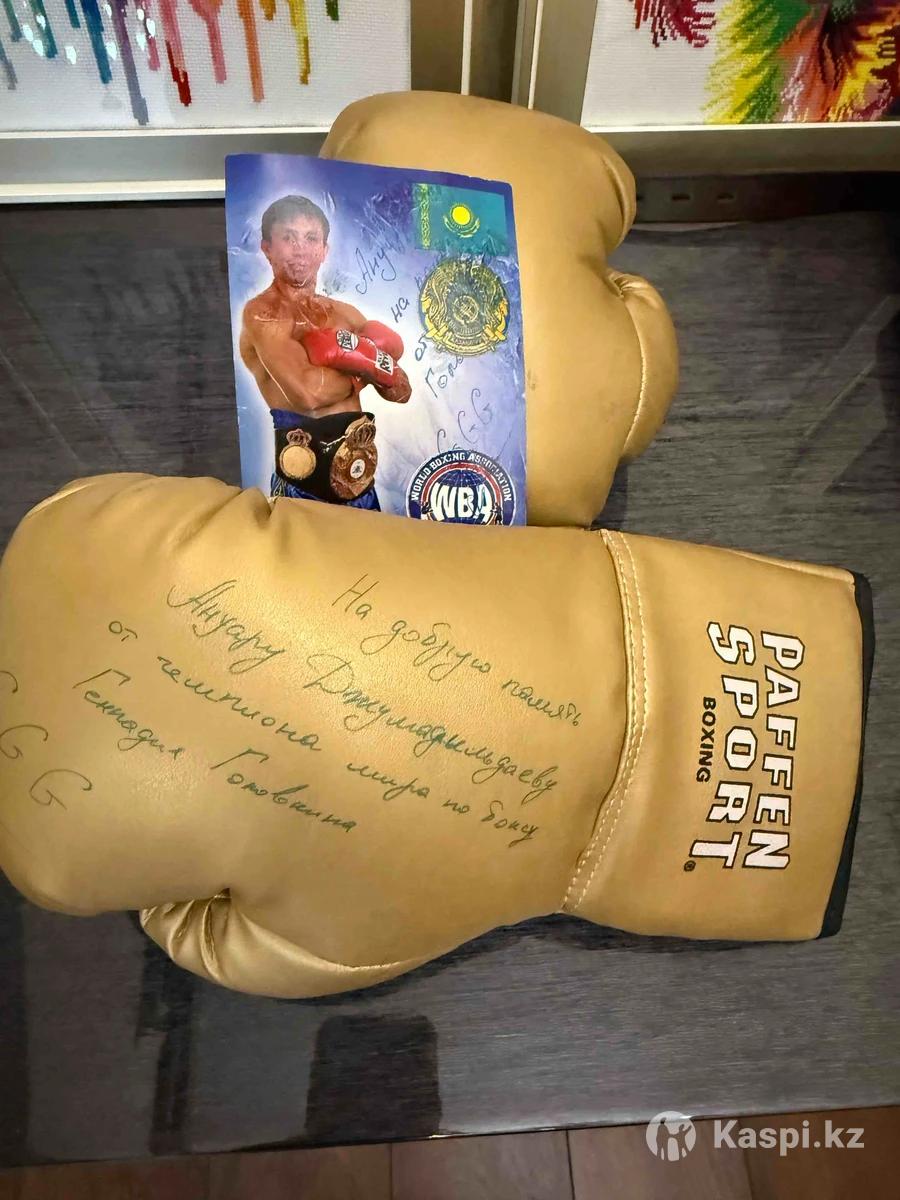 Ануару
на
от
GGG
WORLD BOXING ASSOCIATION
WBA
На добрую память
Ануару
от чемпиона мира по боксу
Геннадия Головкина
GGG
PAFFEN
SPORT®
BOXING
Kaspi.kz